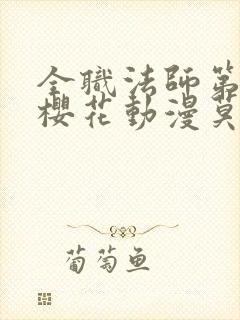 全職法師第
櫻花動漫莫
葡萄鱼